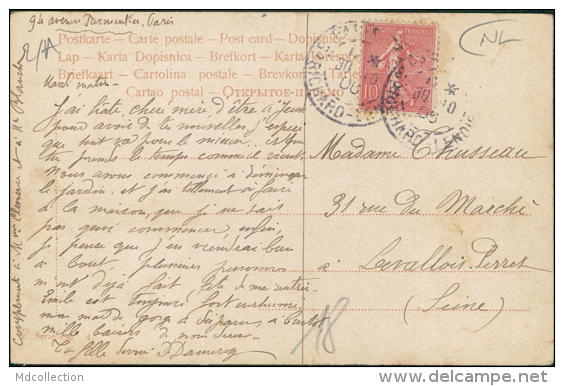 94 avenue Parmentier. Paris
Postkarte - Carte postale - Post card - Dopisnice
Lap - Karta Dopisnica - Brefkort - Karta
Briefkaart - Cartolina postale - Brevkort
Cartao postal - ОТКРЫТОЕ
NL
R/A
10
Mardi matin
J'ai hâte, chère mère d'être à jeudi
pour avoir de te nouvelles, j'espère
que tout va pour le mieux. et que
tu prends le temps comme il vient.
Nous avons commencé à déménager
le jardin, et j'ai tellement à faire
à la maison, que je ne sais
pas quoi commencer, enfin,
je pense que j'en viendrai bien
à bout, plusieurs personnes
m'ont déjà fait fête de me
Emile est toujours fort enrhumé
moi mal de gorge a disparu, à
mille baisers de nous deux
Ta fille
Compliments à Mme Clemence et à M. Blanche
Madame Chusseau
31 rue du Marché
à Levallois-Perret
(Seine)
18
Serie
Mdcollection
delcampe.net